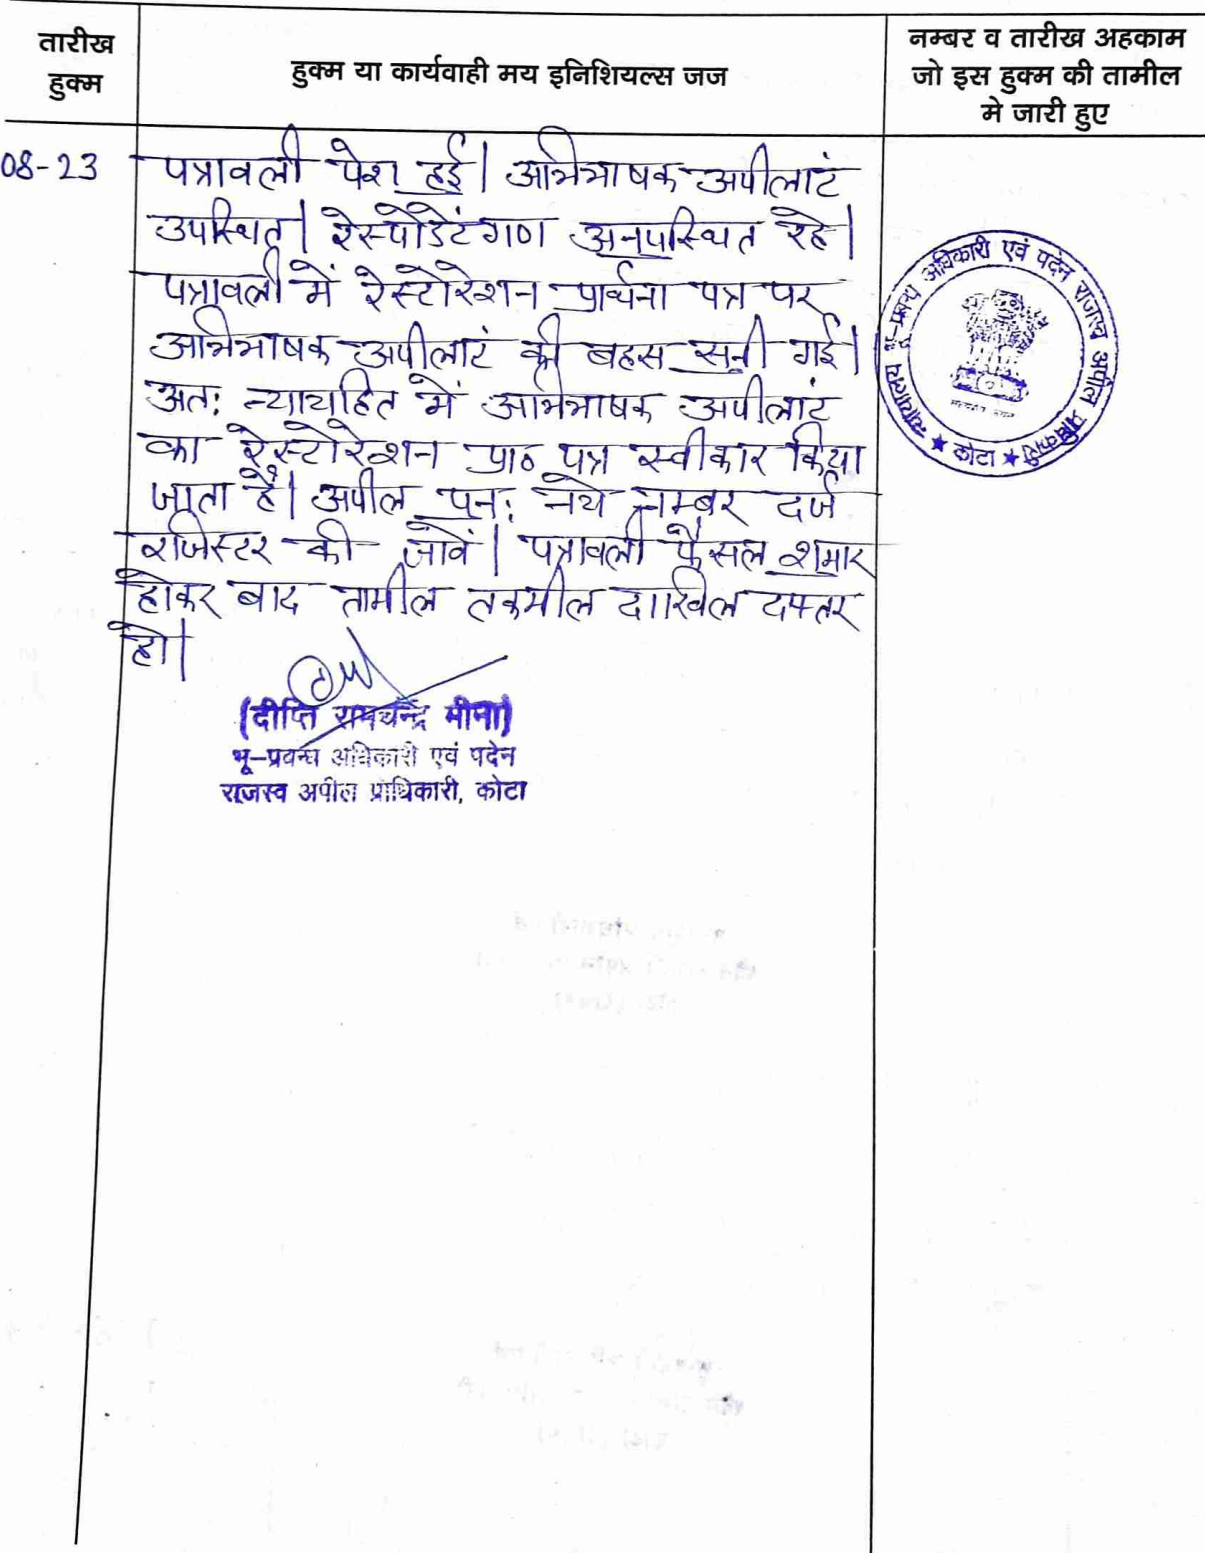 तारीख
हुक्म
हुक्म या कार्यवाही मय इनिशियल्स जज
नम्बर व तारीख अहकाम
जो इस हुक्म की तामील
मे जारी हुए
08-23
पत्रावली पेश हुई। अभिभाषक अपीलांट
उपस्थित। रेस्पोडेंटगण अनुपस्थित रहे।
पत्रावली में रेस्टोरेशन प्रार्थना पत्र पर
अभिभाषक अपीलांट की बहस सुनी गई।
अतः न्यायहित में अभिभाषक अपीलांट
का रेस्टोरेशन प्रा० पत्र स्वीकार किया
जाता है। अपील पुनः नये नम्बर दर्ज
रजिस्टर की जावें। पत्रावली फैसल शुमार
होकर बाद तामील तकमील दाखिल दफ्तर
हो।
(दीप्ति रामचन्द्र मीना)
भू-प्रबन्ध अधिकारी एवं पदेन
राजस्व अपील प्राधिकारी, कोटा
न्यायालय भू-प्रबन्ध अधिकारी एवं पदेन राजस्व अपील प्राधिकारी ★ कोटा ★